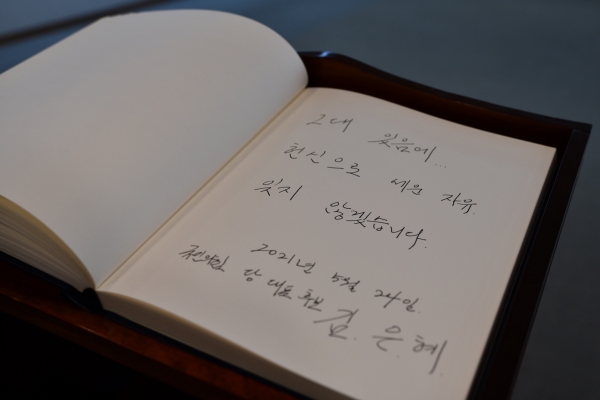 그대 있음에...
헌신으로 세운 자유
잊지 않겠습니다.
2021년 5월 24일.
국민의힘 당 대표 후보 김 은 혜